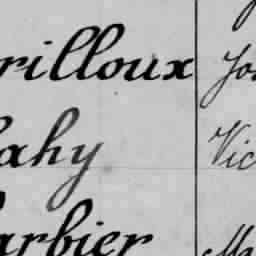 rilloux Jo
ahy Vic
arbier Ma